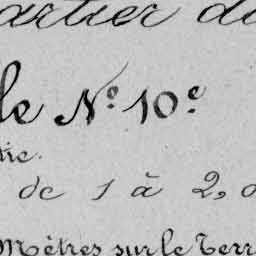 artier du
le N.º 10.e
tie.
de 1 à 2,0
Mètres sur le Terr